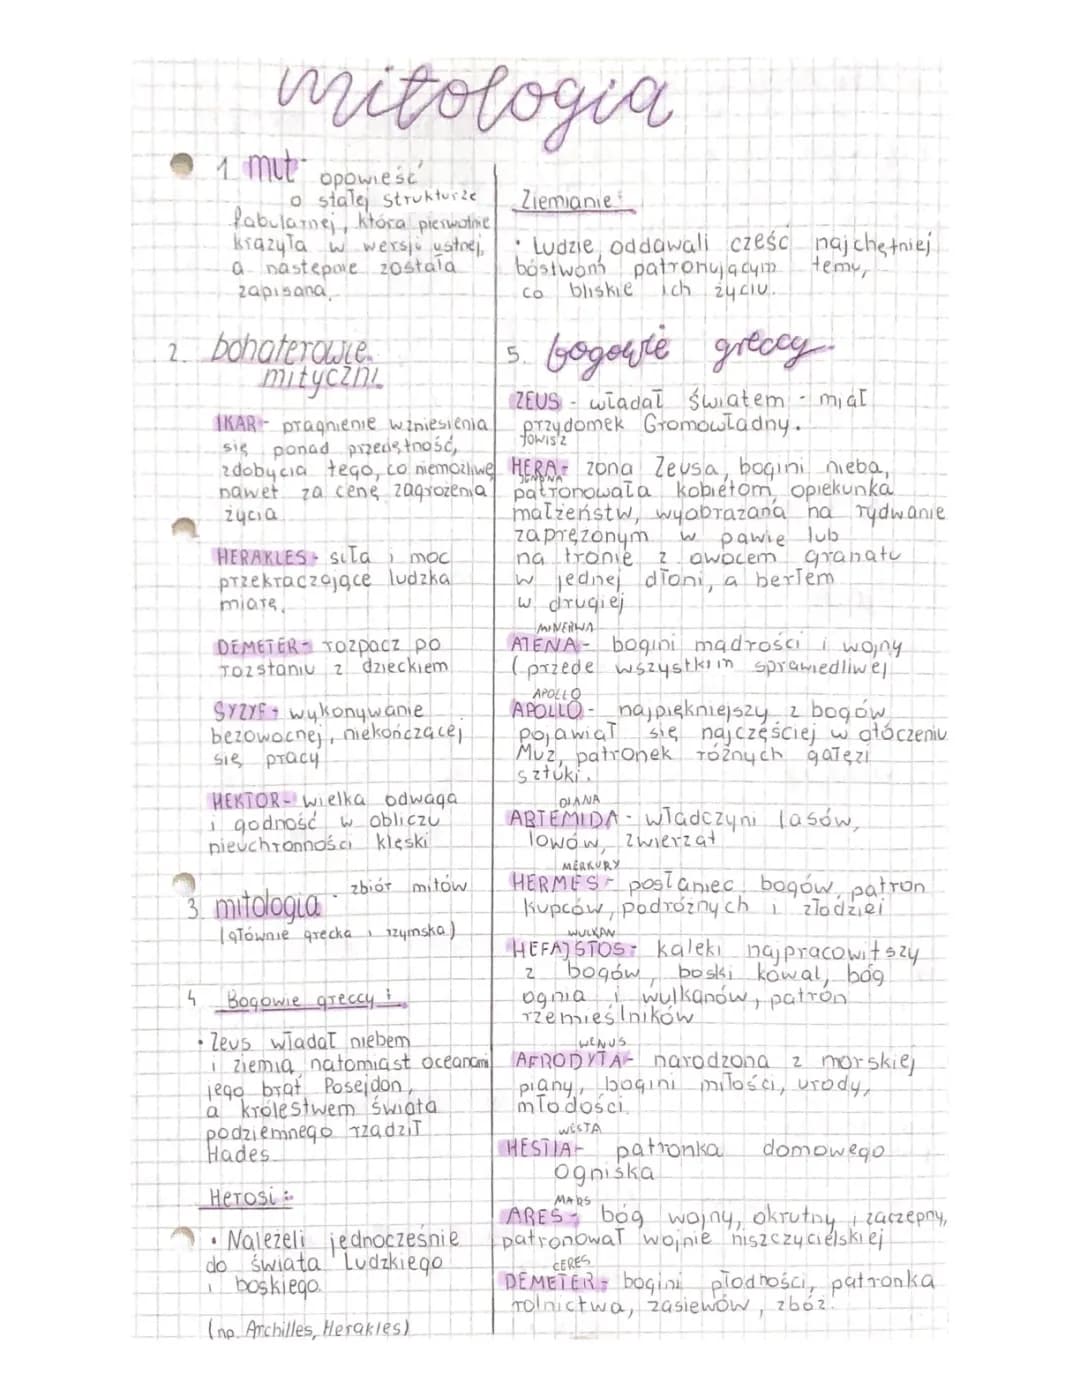 mitologia
1. mit - opowieść
o stałej strukturze
fabularnej, która pierwotnie
krążyła w wersji ustnej,
a następnie została
zapisana.
2. bohaterowie
mityczni
IKAR - pragnienie wzniesienia
się ponad przeciętność,
zdobycia tego, co niemożliwe
nawet za cenę zagrożenia
życia
HERAKLES - siła i moc
przekraczające ludzka
miarę.
DEMETER - rozpacz po
rozstaniu z dzieckiem
SYZYF - wykonywanie
bezowocnej, niekończącej
się pracy
HEKTOR - wielka odwaga
i godność w obliczu
nieuchronności klęski
3. mitologia - zbiór mitów
(głównie grecka i rzymska)
4 Bogowie greccy:
• Zeus władał niebem
i ziemią, natomiast oceanami
jego brat Posejdon,
a królestwem świata
podziemnego rządził
Hades.
Herosi:
• Należeli jednocześnie
do świata ludzkiego
i boskiego.
(np. Archilles, Herakles)
Ziemianie:
• Ludzie oddawali cześć najchętniej
bóstwom patronującym temu,
co bliskie ich życiu.
5. bogowie greccy
ZEUS - władał światem - miał
przydomek Gromowładny.
JOWISZ
HERA - żona Zeusa, bogini nieba,
JUNONA
patronowała kobietom, opiekunka
małżeństw, wyobrażana na rydwanie
zaprężonym w pawie lub
na tronie z owocem granatu
w jednej dłoni, a berłem
w drugiej
MINERWA
ATENA - bogini mądrości i wojny
(przede wszystkim sprawiedliwej
APOLLO
APOLLO - najpiękniejszy z bogów
pojawiał się najczęściej w otoczeniu
Muz, patronek różnych gałęzi
sztuki.
DIANA
ARTEMIDA - władczyni lasów,
łowów, zwierząt
MERKURY
HERMES - posłaniec bogów, patron
kupców, podróżnych i złodziei
WULKAN
HEFAJSTOS - kaleki najpracowitszy
z bogów, boski kowal, bóg
ognia i wulkanów, patron
rzemieślników
WENUS
AFRODYTA - narodzona z morskiej
piany, bogini miłości, urody,
młodości.
WESTA
HESTIA - patronka domowego
ogniska
MARS
ARES - bóg wojny, okrutny i zaczepny,
patronował wojnie niszczycielskiej
CERES
DEMETER - bogini płodności, patronka
rolnictwa, zasiewów, zbóż.